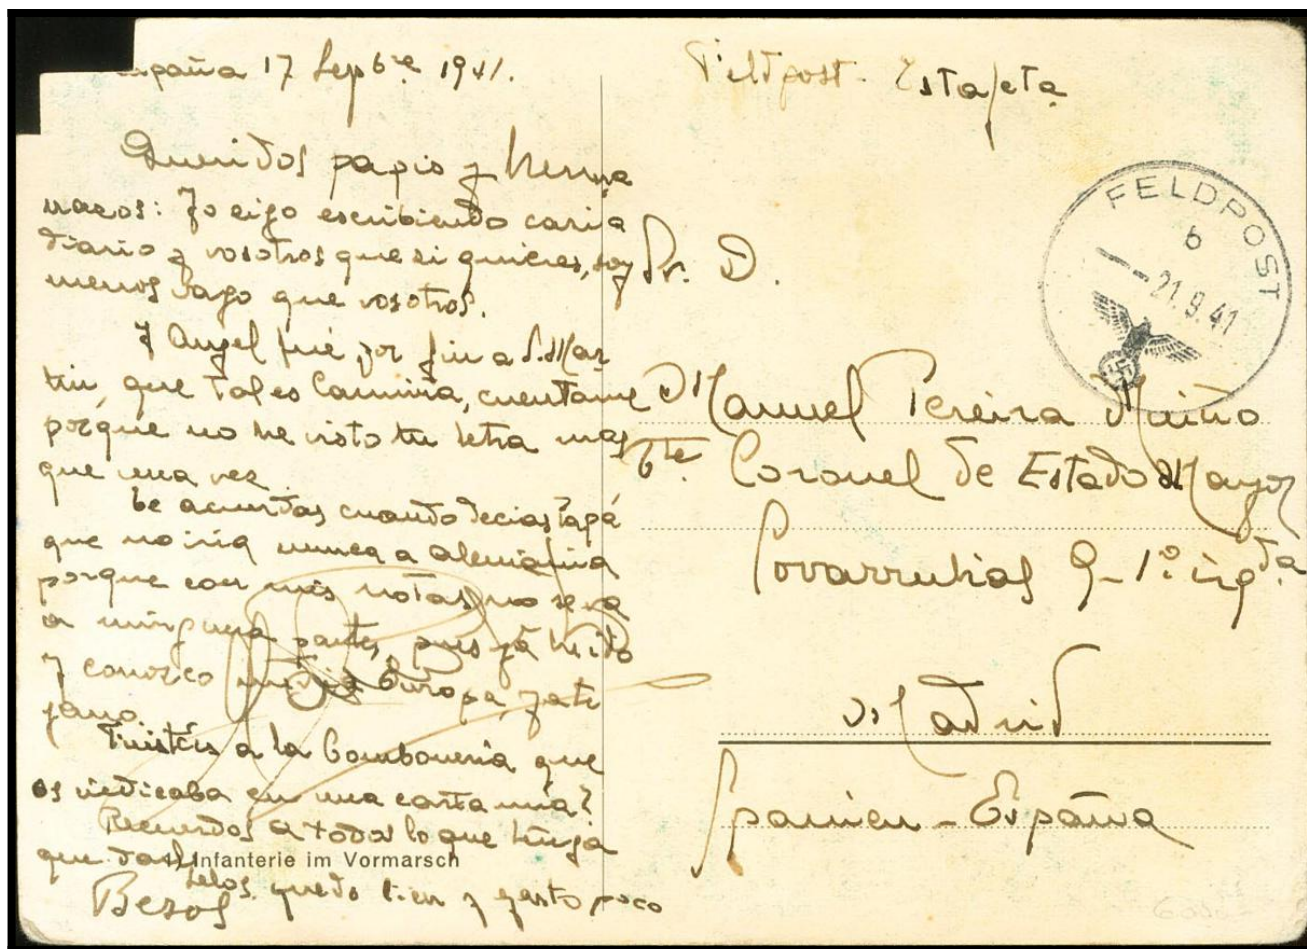 17 Sepbre 1941.
Queridos papis y herma
nazos: Yo sigo escribiendo carta
diario y vosotros que si quieres, soy
menos vago que vosotros.
Y Angel fué por fin a S. Mar
tin, que tal es Camiña, cuentame
porque no he visto tu letra mas
que una vez.
te acuerdas cuando decias Papá
que no iria nunca a Alemania
porque con mis notas no se va
a ninguna parte, pues ya he ido
y conozco Europa, ya te
gano.
Fuisteis a la Bomboneria que
os indicaba en una carta mia?
Recuerdos a todos lo que tenga
que
Infanterie im Vormarsch
selos. quedo bien y gasto poco
Besos
Feldpost - Estafeta
FELDPOST
b
-21.9.41
Sr. D.
Manuel Pereira Muiño
Tte. Coronel de Estado Mayor
Covarrubias 9 - 1º izqda.
Madrid
Spanien - España